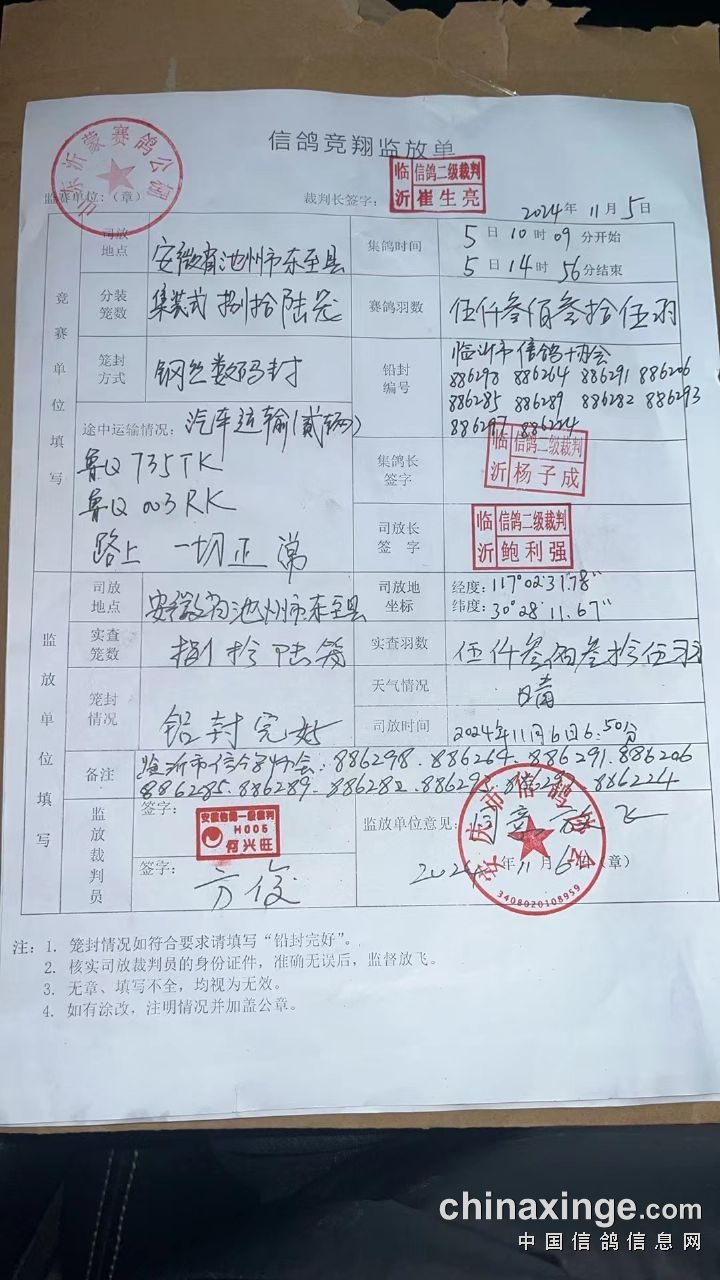 信鸽竞翔监放单
山东沂蒙赛鸽公棚
监赛单位:（章）
裁判长签字：
临沂 信鸽二级裁判 崔生亮
2024年11月5日
竞赛单位填写
司放地点
安徽省池州市东至县
集鸽时间
5日10时09分开始
5日14时56分结束
分装笼数
集装式 捌拾陆笼
赛鸽羽数
伍仟叁佰叁拾伍羽
笼封方式
钢丝数码封
铅封编号
临沂市信鸽协会
886298 886264 886291 886206
886285 886289 886282 886293
886297 886224
途中运输情况：汽车运输(贰辆)
鲁Q 735TK
鲁Q 003RK
路上一切正常
集鸽长签字
临沂 信鸽二级裁判 杨子成
司放长签字
临沂 信鸽二级裁判 鲍利强
监放单位填写
司放地点
安徽省池州市东至县
司放地坐标
经度：117°02′31.78″
纬度：30°28′11.67″
实查笼数
捌拾陆笼
实查羽数
伍仟叁佰叁拾伍羽
笼封情况
铅封完好
天气情况
晴
司放时间
2024年11月6日6:50分
备注
临沂市信鸽协会：886298.886264.886291.886206
886285.886289.886282.886293.886297.886224
监放裁判员
签字：
安徽信鸽一级裁判
H005
何兴旺
签字：
方俊
监放单位意见：同意放飞
2024年11月6日（章）
3408020108959
注：1. 笼封情况如符合要求请填写“铅封完好”。
2. 核实司放裁判员的身份证件，准确无误后，监督放飞。
3. 无章、填写不全，均视为无效。
4. 如有涂改，注明情况并加盖公章。
chinaxinge.com
中国信鸽信息网